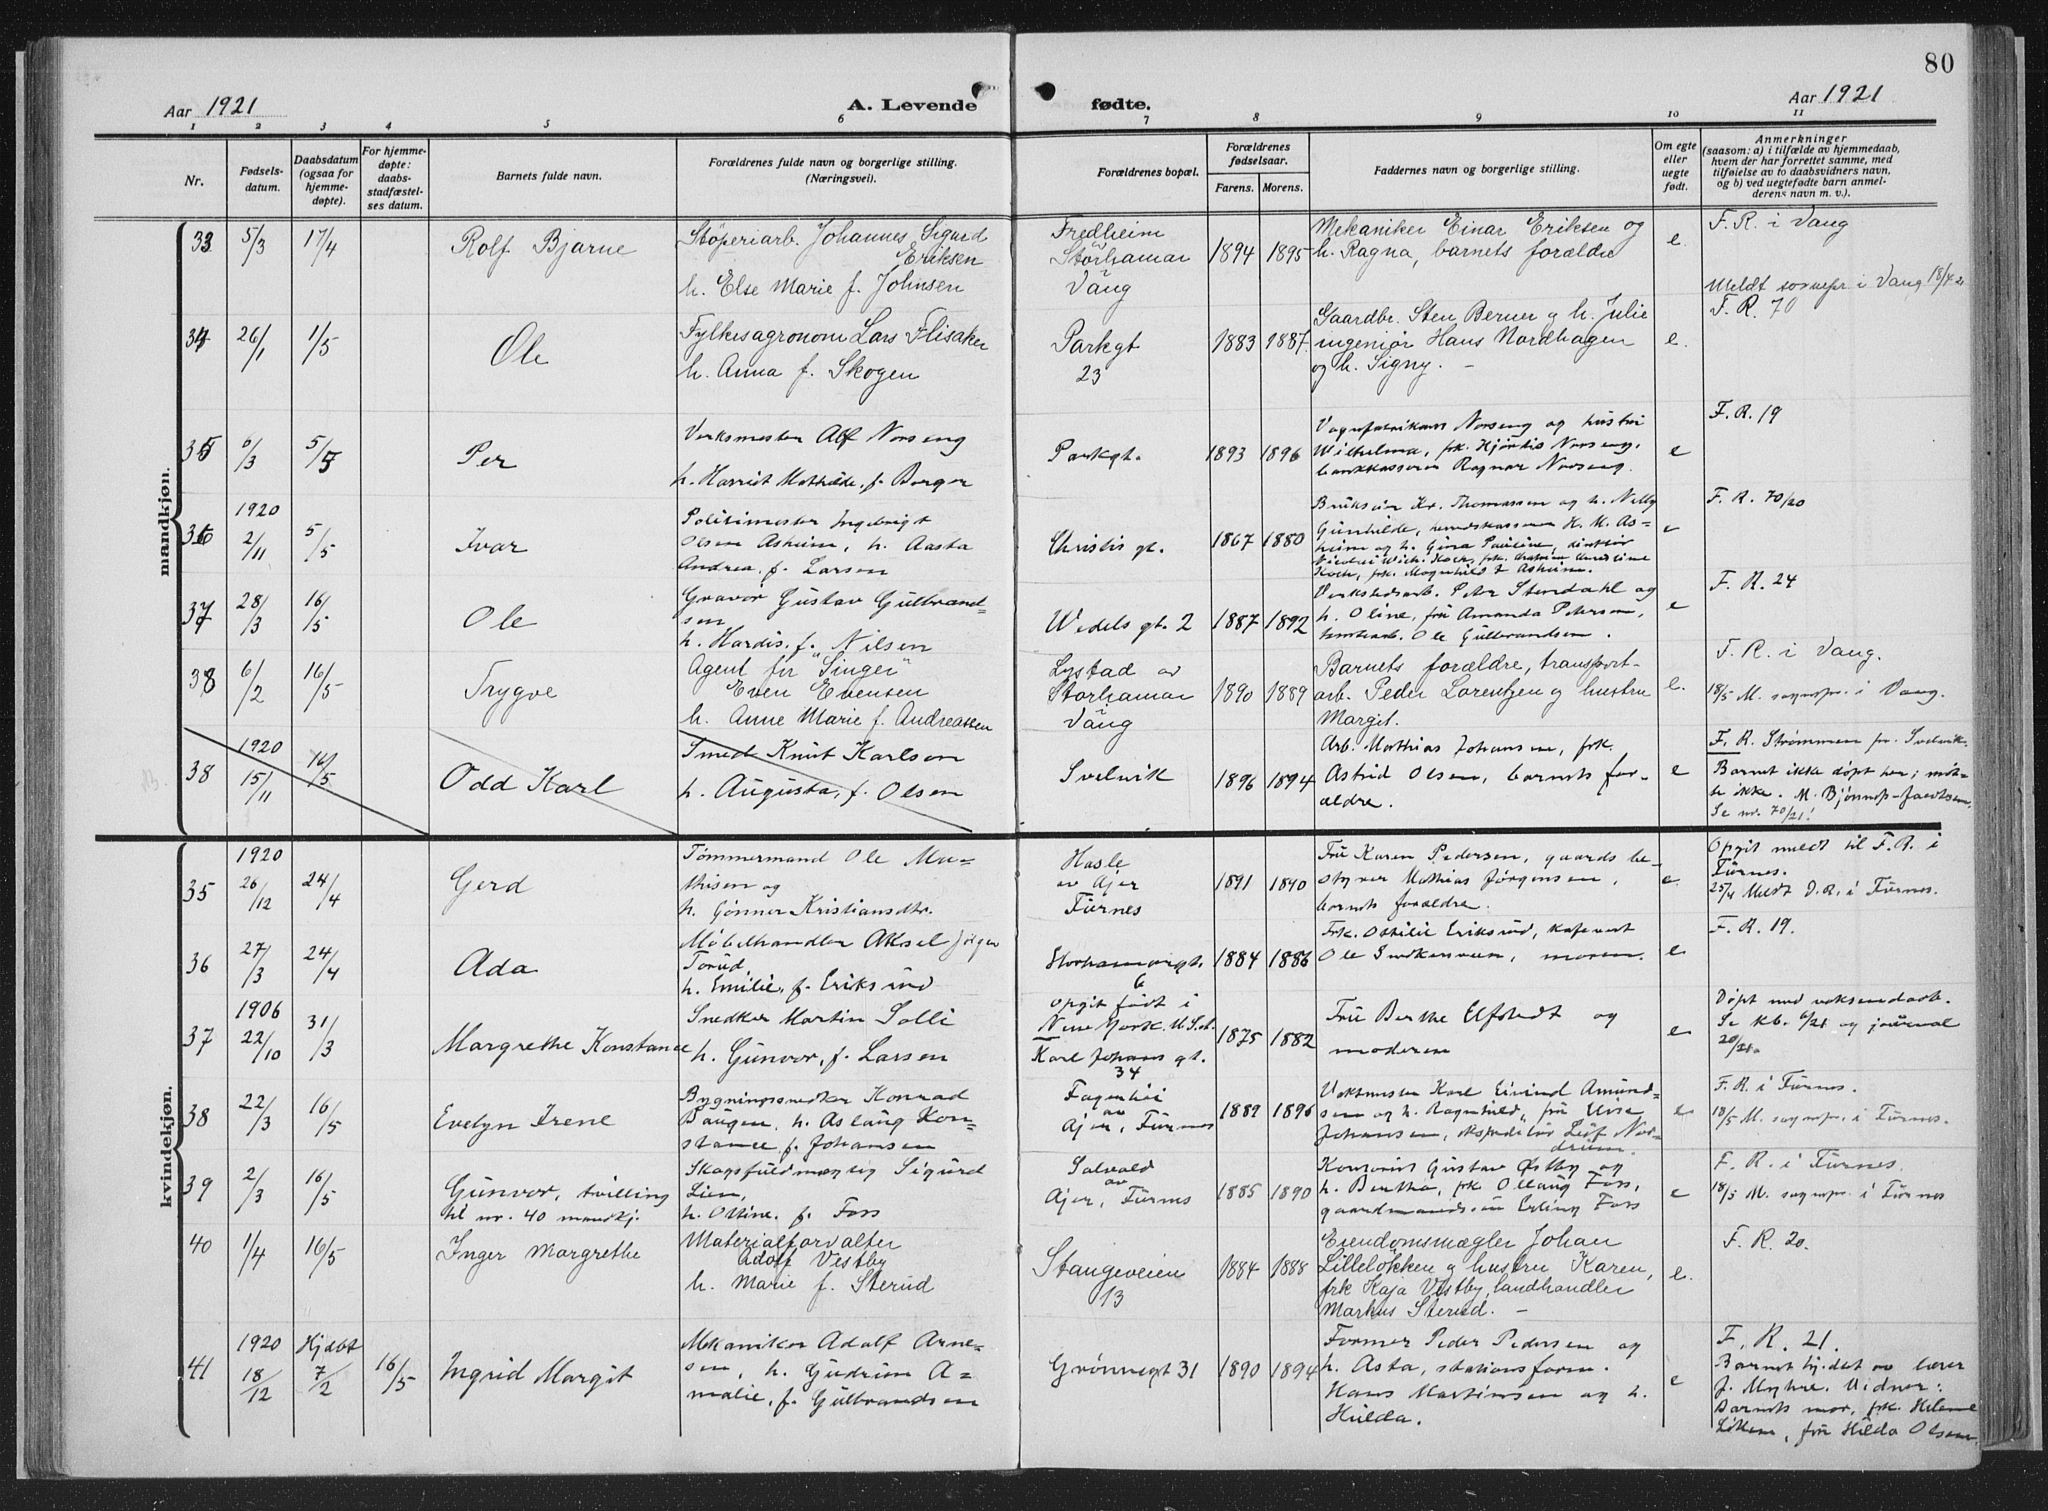 80
Aar 1921
A. Levende fødte.
Aar 1921
1 2 3 4 5 6 7 8 9 10 11
Nr.
Fødsels-
datum.
Daabsdatum
(ogsaa for
hjemme-
døpte).
For hjemme-
døpte:
daabs-
stadfæstel-
ses datum.
Barnets fulde navn.
Forældrenes fulde navn og borgerlige stilling.
(Næringsvei).
Forældrenes bopæl.
Forældrenes
fødselsaar.
Farens. Morens.
Faddernes navn og borgerlige stilling.
Om egte
eller
uegte
født.
Anmerkninger
(saasom: a) i tilfælde av hjemmedaab,
hvem der har forrettet samme, med
tilføielse av to daabsvidners navn,
og b) ved uegtefødte barn anmel-
derens navn m. v.).
mandkjøn.
33 5/3 17/4
Rolf Bjarne
Støperiarb. Johannes Sigurd
Eriksen
h. Else Marie f. Johnsen
Fredheim
Storhamar
Vang
1894 1895
Mekaniker Einar Eriksen og
h. Ragna, barnets forældre
e.
F. R. i Vang
Meldt sognepr. i Vang 18/4 21
34 26/1 1/5
Ole
Fylkesagronom Lars Flisaker
h. Anna f. Skogen
Parkgt
23
1883 1887.
Gaardbr. Sten Berner g h. Julie
ingeniør Hans Nordhagen
og h. Signy. –
e.
F. R. 70
35 6/3 5/5
Per
Verksmester Alf Norseng
h. Harriet Mathilde, f. Berger
Parkgt.
1893 1896
Vognfabrikant Norseng og hustru
Wilhelma, frk. Hjørdis Norseng,
bankkasserer Ragnar Norseng.
e
F. R. 19
36 1920
2/11 5/5
Ivar
Politimester Ingebrigt
Olsen Asheim, h. Aasta
Andrea, f. Larsen
Christis gt.
1867 1880
Brukseier Kr. Thomassen og h. Nelly
Gunhilde, H. M. As-
heim og h. Gina Pauline, direktør
Koch, frk. Magnhild Asheim.
e
F. R. 70/20
37 28/3 16/5
Ole
Gravør Gustav Gulbrand-
sen
h. Hardis, f. Nilsen
Wedels gt. 2
1887 1892
Verkstedsarb. Peter Stendahl og
h. Oline, fru Amanda Petersen,
Ole Gulbrandsen.
e
F. R. 24
38 6/2 16/5
Trygve
Agent for "Singer"
Even Evensen
h. Anne Marie f. Andreassen
Lystad av
Storhamar
Vang
1890 1889
Barnets forældre, transport-
arb. Peder Lorentzen g hustru
Margit.
e.
F. R. i Vang.
18/5 M. sognepr. i Vang.
38 1920
15/11 16/5
Odd Karl
Smed Knut Karlsen
h. Augusta, f. Olsen
Svelvik
1896 1894
Arb. Mathias Johansen, frk.
Astrid Olsen, barnets for-
ældre.
e
F. R. Strømmen pr. Svelvik.
Barnet ikke døpt her; møt-
te ikke. M.
Se nr. 70/21!
kvindekjøn.
35 1920
26/12 24/4
Gerd
Tømmermand Ole Ma-
thisen og
h. Gønner Kristiansdtr.
Hasle
av Ajer
Furnes
1891 1890
Fru Karen Pedersen, gaardsbe-
styrer Mathias Jørgensen,
barnets forældre.
e.
Opgit meldt til F. R. i
Furnes.
25/4 Meldt D. R. i Furnes.
36 27/3 24/4
Ada
Møbelhandler Aksel Jørgen
Torud,
h. Emilie, f. Eriksrud
Storhamargt.
6
1884 1886
Frk. Ottilie Eriksrud, kafevert
Ole moren.
e
F. R. 19.
37 1906
22/10 31/3
Margrethe Konstance
Snedker Martin Solli
h. Gunvor, f. Larsen
Opgit født i
New York U. S. A.
Karl Johans gt.
34
1875 1882
Fru Berthe Ufstedt og
moderen
e
Døpt med voksendaab.
Se kb. 6/21 og journal
20/21.
38 22/3 16/5
Evelyn Irene
Bygningssnedker Konrad
Baugen, h. Aslaug Kon-
stance f. Johansen
Fagerlii
av
Ajer, Furnes
1882 1896
Vaktmester Karl Eivind Amund-
sen og h. Ragnhild, fru
Johansen, ekspeditør Leif Nor-
drum.
e
F. R. i Furnes.
18/5 M. sognepr. i Furnes.
39 2/3 16/5
Gunvor, tvilling
til nr. 40 mandkj.
Skogsfuldmægtig Sigurd
Lien,
h. Ottine, f. Foss
Solvold
av
Ajer, Furnes
1885 1890
Gustav Østby og
h. Bertha, frk Ollaug Foss,
gaardmandssøn Erling Foss
e
F. R. i Furnes.
18/5 M. sognepr. i Furnes
40 1/4 16/5
Inger Margrethe
Materialforvalter
Adolf Vestby
h. Marie f. Sterud
Stangeveien
13
1884 1888
Eiendomsmægler Johan
Lilleløkken g hustru Karen,
frk Kaja Vestby, landhandler
Markus Sterud. –
e.
F. R. 20.
41 1920
18/12
Hjdøt
7/2 16/5
Ingrid Margit
Mekaniker Adolf Arne-
sen, h. Gudrun A-
malie, f. Gulbrandsen
Grønnegt 31
1890 1894
Former Peder Pedersen og
h. Asta, stationsform.
Hans Martinsen og h.
Hulda.
e
F. R. 21.
Barnet hj.døt av lærer
J. Myhre. Vidner:
Barnets mor, frk. Helene
Løken, fru Hilda Olsen.